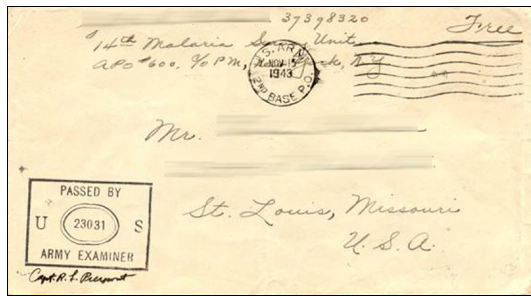 37398320
Free
14th Malaria Unit
APO #600, c/o PM, N.Y.
U.S. ARMY
NOV 15
1943
2ND BASE P.O.
Mr.
St. Louis, Missouri
U.S.A.
PASSED BY
U 23031 S
ARMY EXAMINER
Capt. R. L.